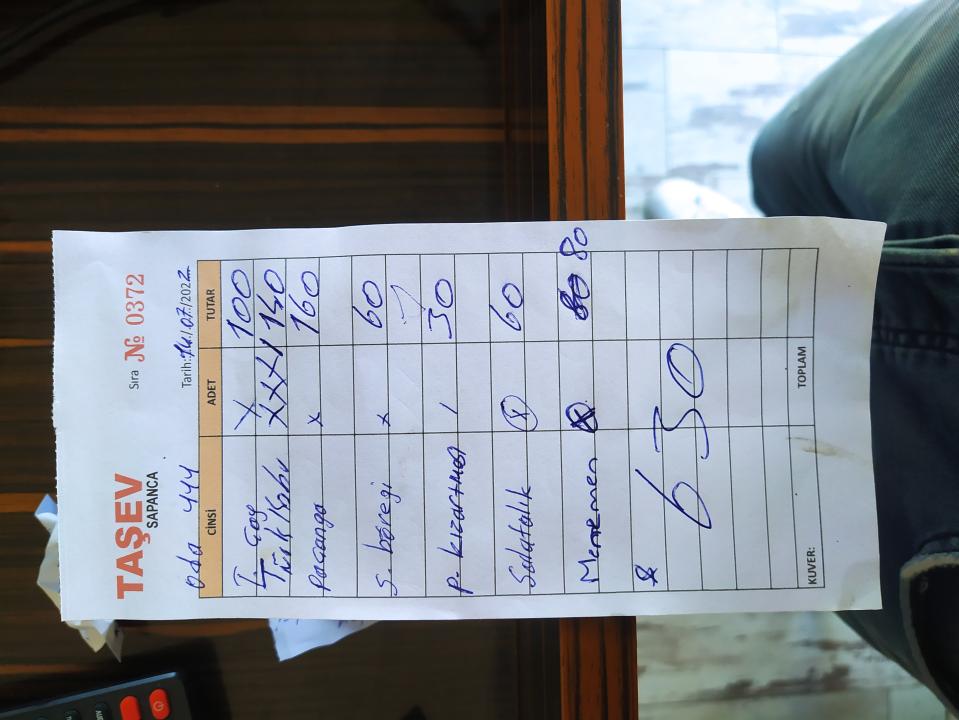 TAŞEV
SAPANCA
Sıra № 0372
Oda 444
Tarih: 14/07/2022
CİNSİ ADET TUTAR
T. X 100
T XXXX 140
Paçanga x 160
S. böreği x 60
P. kızartması / 30
Salatalık x 60
Menemen 80
630
KUVER: TOPLAM